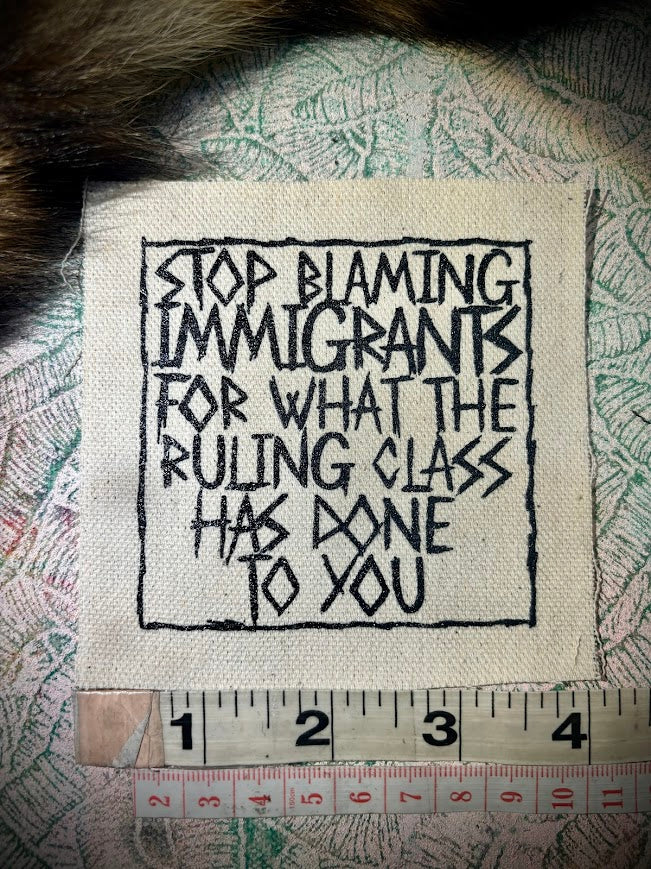 STOP BLAMING
IMMIGRANTS
FOR WHAT THE
RULING CLASS
HAS DONE
TO YOU
1 2 3 4
2 3 4 150cm 5 6 7 8 9 10 11